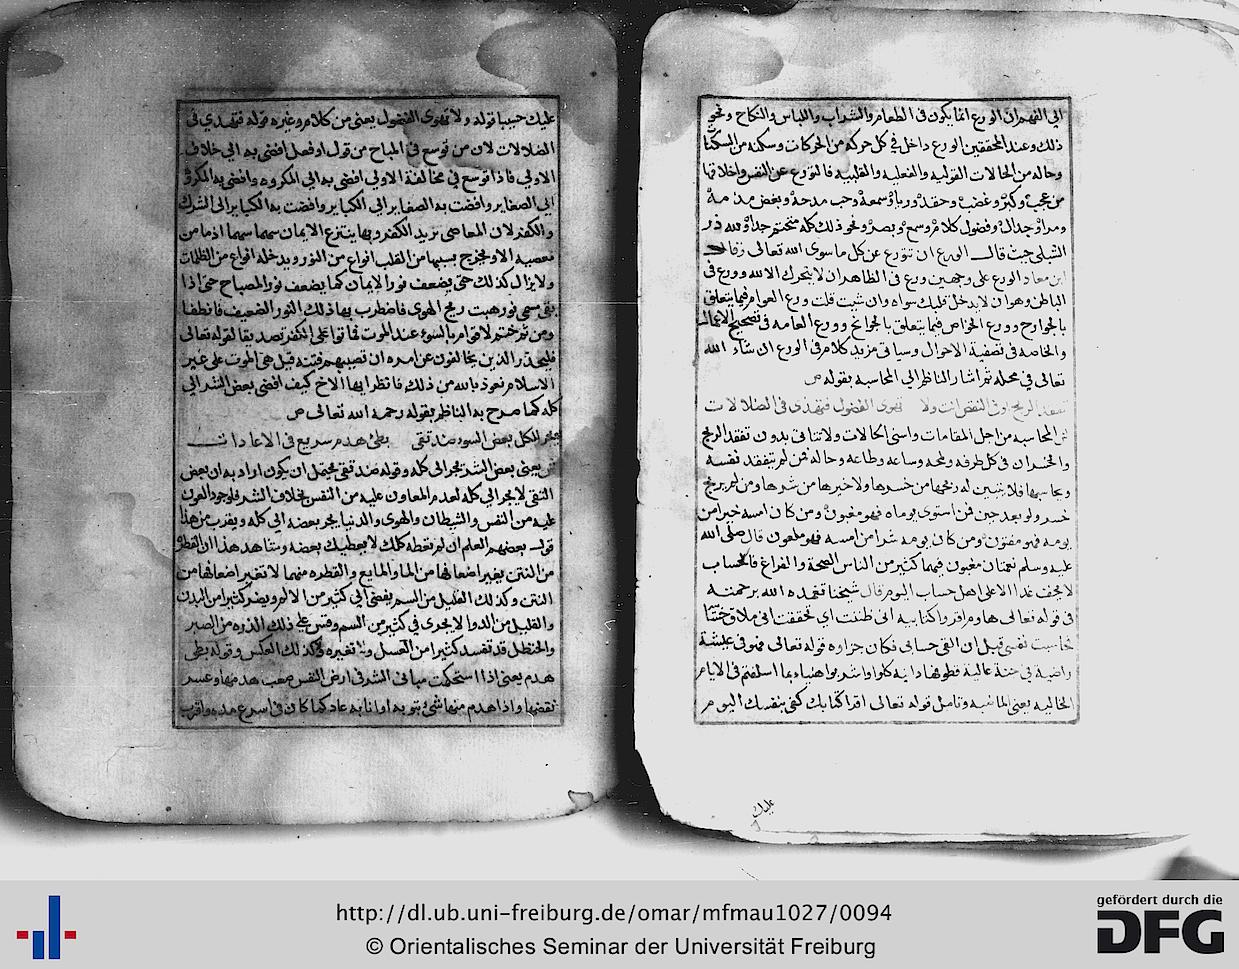 الى الفهم ان الورع انما يكون فى الطعام والشراب واللباس والنكاح ونحو
ذلك وعند المحققين الورع داخل فى كل حركه من الحركات وسكنه من السكنات
وحاله من الحالات القوليه والفعليه والقلبيه فالتورع عن النفس واخلاقها
من عجب وكبر وغضب وحقد ورياء وسمعة وحب مدحة وبغض مذمة
ومراء وجدال وفضول كلام وسمع وبصر ونحو ذلك كله متحتم جدا ولله در
الشبلى حيث قال الورع ان تتورع عن كل ما سوى الله تعالى وقال
ابن معاد الورع على وجهين ورع فى الظاهر ان لا يتحرك الا لله وورع فى
الباطن وهو ان لا يدخل قلبك سواه وان شيت قلت ورع العوام فيما يتعلق
بالجوارح وورع الخواص فيما يتعلق بالجوانح وورع العامه فى تصحيح الاعمال
والخاصه فى تصفية الاحوال وسياتى مزيد كلام فى الورع ان شاء الله
تعالى فى محله ثم اشار الناظر الى المحاسبه بقوله ص
تفقد الربح او فى النقص انت ولا تهوى الفضول فتهدى فى الضلالات
ش المحاسبه من اجل المقامات واسنى الحالات ولا تتاتى بدون تفقد الربح
والخسران فى كل طرفه ولمحه وساعه وطاعه وحاله فمن لم يتفقد نفسه
ويحاسبها فلا يتبين له ربحها من خسرها ولا خيرها من شرها ومن لم يربح
خسر ولو بعد حين فمن استوى يوماه فهو مغبون ومن كان امسه خير من
يومه فهو مفتون ومن كان يومه شرا من امسه فهو ملعون قال صلى الله
عليه وسلم نعمتان مغبون فيهما كثير من الناس الصحة والفراغ فالحساب
لا يخف غدا الا على اهل حساب اليوم قال شيخنا تغمده الله برحمته
فى قوله تعالى هاوم اقروا كتابيه انى ظننت اى تحققت انى ملاق حسابيه
حاسبت نفسى قبل ان القى حسابى فكان جزاوه قوله تعالى فهو فى عيشة
راضية فى جنة عالية قطوفها دانية كلوا واشربوا هنياء بما اسلفتم فى الايام
الخاليه يعنى الماضيه وتامل قوله تعالى اقرا كتابك كفى بنفسك اليوم
عليك
عليك حسيبا قوله ولا تهوى الفضول يعنى من كلام وغيره قوله فتهدى فى
الضلالات لان من توسع فى المباح من قول او فعل افضى به الى خلاف
الاولى فاذا توسع فى مخالفة الاولى افضى به الى المكروه وافضى به المكروه
الى الصغاير وافضت به الصغاير الى الكباير وافضت به الكباير الى الشرك
والكفر لان المعاصى بريد الكفر وبها ينتزع الايمان سهما سهما اذ ما من
معصيه الا ويخرج بسببها من القلب انواع من النور ويدخله انواع من الظلمات
ولا يزال كذلك حتى يضعف نور الايمان كما يضعف نور المصباح حتى اذا
بقى معى نور هبت ريح الهوى فاضطرب بها ذلك النور الضعيف فانطفا
ومن ثم ختم لاقوام بالسوء عند الموت فماتوا على الكفر تصديقا لقوله تعالى
فليحذر الذين يخالفون عن امره ان تصيبهم فتنه قيل هى الموت على غير
الاسلام نعوذ بالله من ذلك فانظر ايها الاخ كيف افضى بعض الشر الى
كله كما صرح به الناظر بقوله رحمه الله تعالى ص
يجر للكل بعض السوء ضد تقى بطى هدم سريع فى الاعادات
ش يعنى بعض الشر يجر الى كله وقوله ضد تقى يحتمل ان يكون اراد به ان بعض
التقى لا يجر الى كله لعدم المعاون عليه من النفس بخلاف الشر فلوجود العون
عليه من النفس والشيطان والهوى والدنيا يجر بعضه الى كله ويقرب من هذا
قول بعضهم العلم ان لم تعطه كلك لا يعطيك بعضه وشاهد هذا ان القطرة
من النتن يغير اضعافها من الماء والمايع والقطره منهما لا تغير اضعافها من
النتن وكذلك القليل من السم يفضى الى كثير من الالم ويضر كثيرا من البدن
والقليل من الدوا لا يجرى فى كثير من السم وقس على ذلك الذره من الصبر
والحنظل قد تفسد كثيرا من العسل وتغيره ولا كذلك العكس وقوله بطى
هدم يعنى اذا استحكمت مبانى الشر فى ارض النفس صعب هدمها وعسر
نقضها واذا هدم منها شئ بتوبه او انابه عاد كما كان فى اسرع مده واقرب
http://dl.ub.uni-freiburg.de/omar/mfmau1027/0094
© Orientalisches Seminar der Universität Freiburg
gefördert durch die
DFG